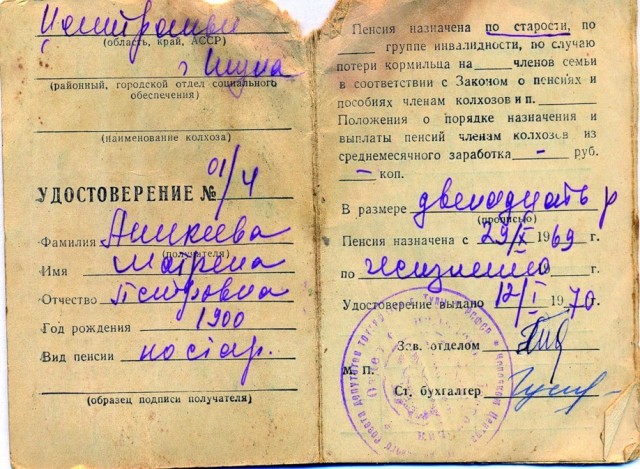 (область, край, АССР)
г
(районный, городской отдел социального
обеспечения)
(наименование колхоза)
УДОСТОВЕРЕНИЕ № 01/4
Фамилия Аникеева
(получателя)
Имя Матрена
Отчество Петровна
Год рождения 1900
Вид пенсии по стар.
(образец подписи получателя)
Пенсия назначена по старости, по
группе инвалидности, по случаю
потери кормильца на членов семьи
в соответствии с Законом о пенсиях и
пособиях членам колхозов и п.
Положения о порядке назначения и
выплаты пенсий членам колхозов из
среднемесячного заработка – руб.
– коп.
В размере двенадцать р
(прописью)
Пенсия назначена с 29/X 1969 г.
по жизненно 19 г.
Удостоверение выдано 12/I 1970 г.
Зав. отделом
М. П.
Ст. бухгалтер